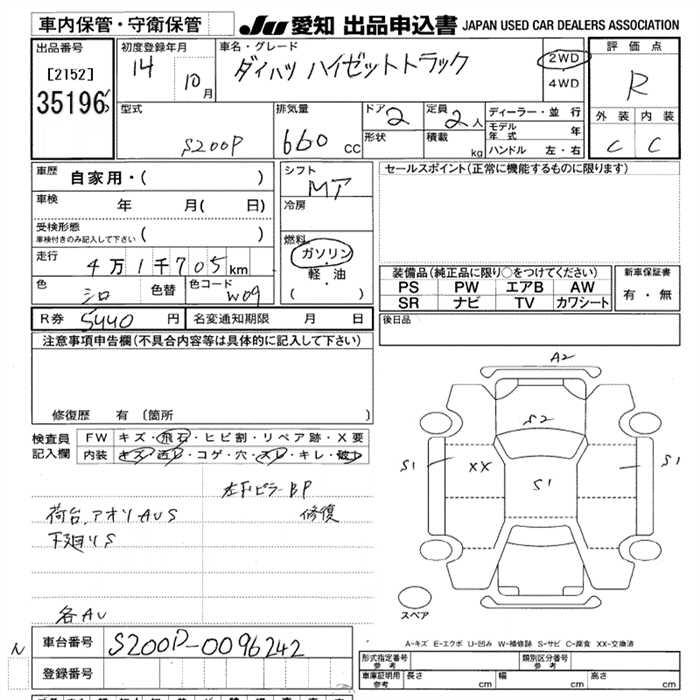 車内保管・守衛保管
JU 愛知 出品申込書 JAPAN USED CAR DEALERS ASSOCIATION
出品番号
[2152]
35196
初度登録年月
14 10月
車名・グレード
ダイハツ ハイゼットトラック
2WD
・
4WD
評価点
R
外装 内装
C C
型式
S200P
排気量
660 cc
ドア 2
形状
定員 2人
積載 kg
ディーラー・並行
モデル年式 年
ハンドル 左・右
車歴 自家用・( )
車検 年 月( 日)
受検形態
車検付きのみ記入して下さい ( )
走行 4万1千705km
色 シロ 色替 色コード W09
シフト
MT
冷房
燃料
ガソリン
・
軽・油
( )
セールスポイント(正常に機能するものに限ります)
装備品(純正品に限り○をつけてください)
PS PW エアB AW
SR ナビ TV カワシート
新車保証書
有・無
R券 5440 円 名変通知期限 月 日
後日品
注意事項申告欄(不具合内容等は具体的に記入して下さい)
修復歴 有 〔箇所 〕
検査員記入欄
FW キズ・飛石・ヒビ割・リペア跡・X要
内装 キズ・汚レ・コゲ・穴・スレ・キレ・破レ
左下ピラーBP
修復
荷台、アオリAUS
下廻りS
各AU
A2
S2
S1 XX S1 S1
スペア
A-キズ E-エクボ U-凹み W-補修跡 S-サビ C-腐食 XX-交換済
N
車台番号 S200P-0096242
登録番号
形式指定番号
参考
類別区分番号
参考
車庫証明用
参考
長さ cm 幅 cm 高さ cm